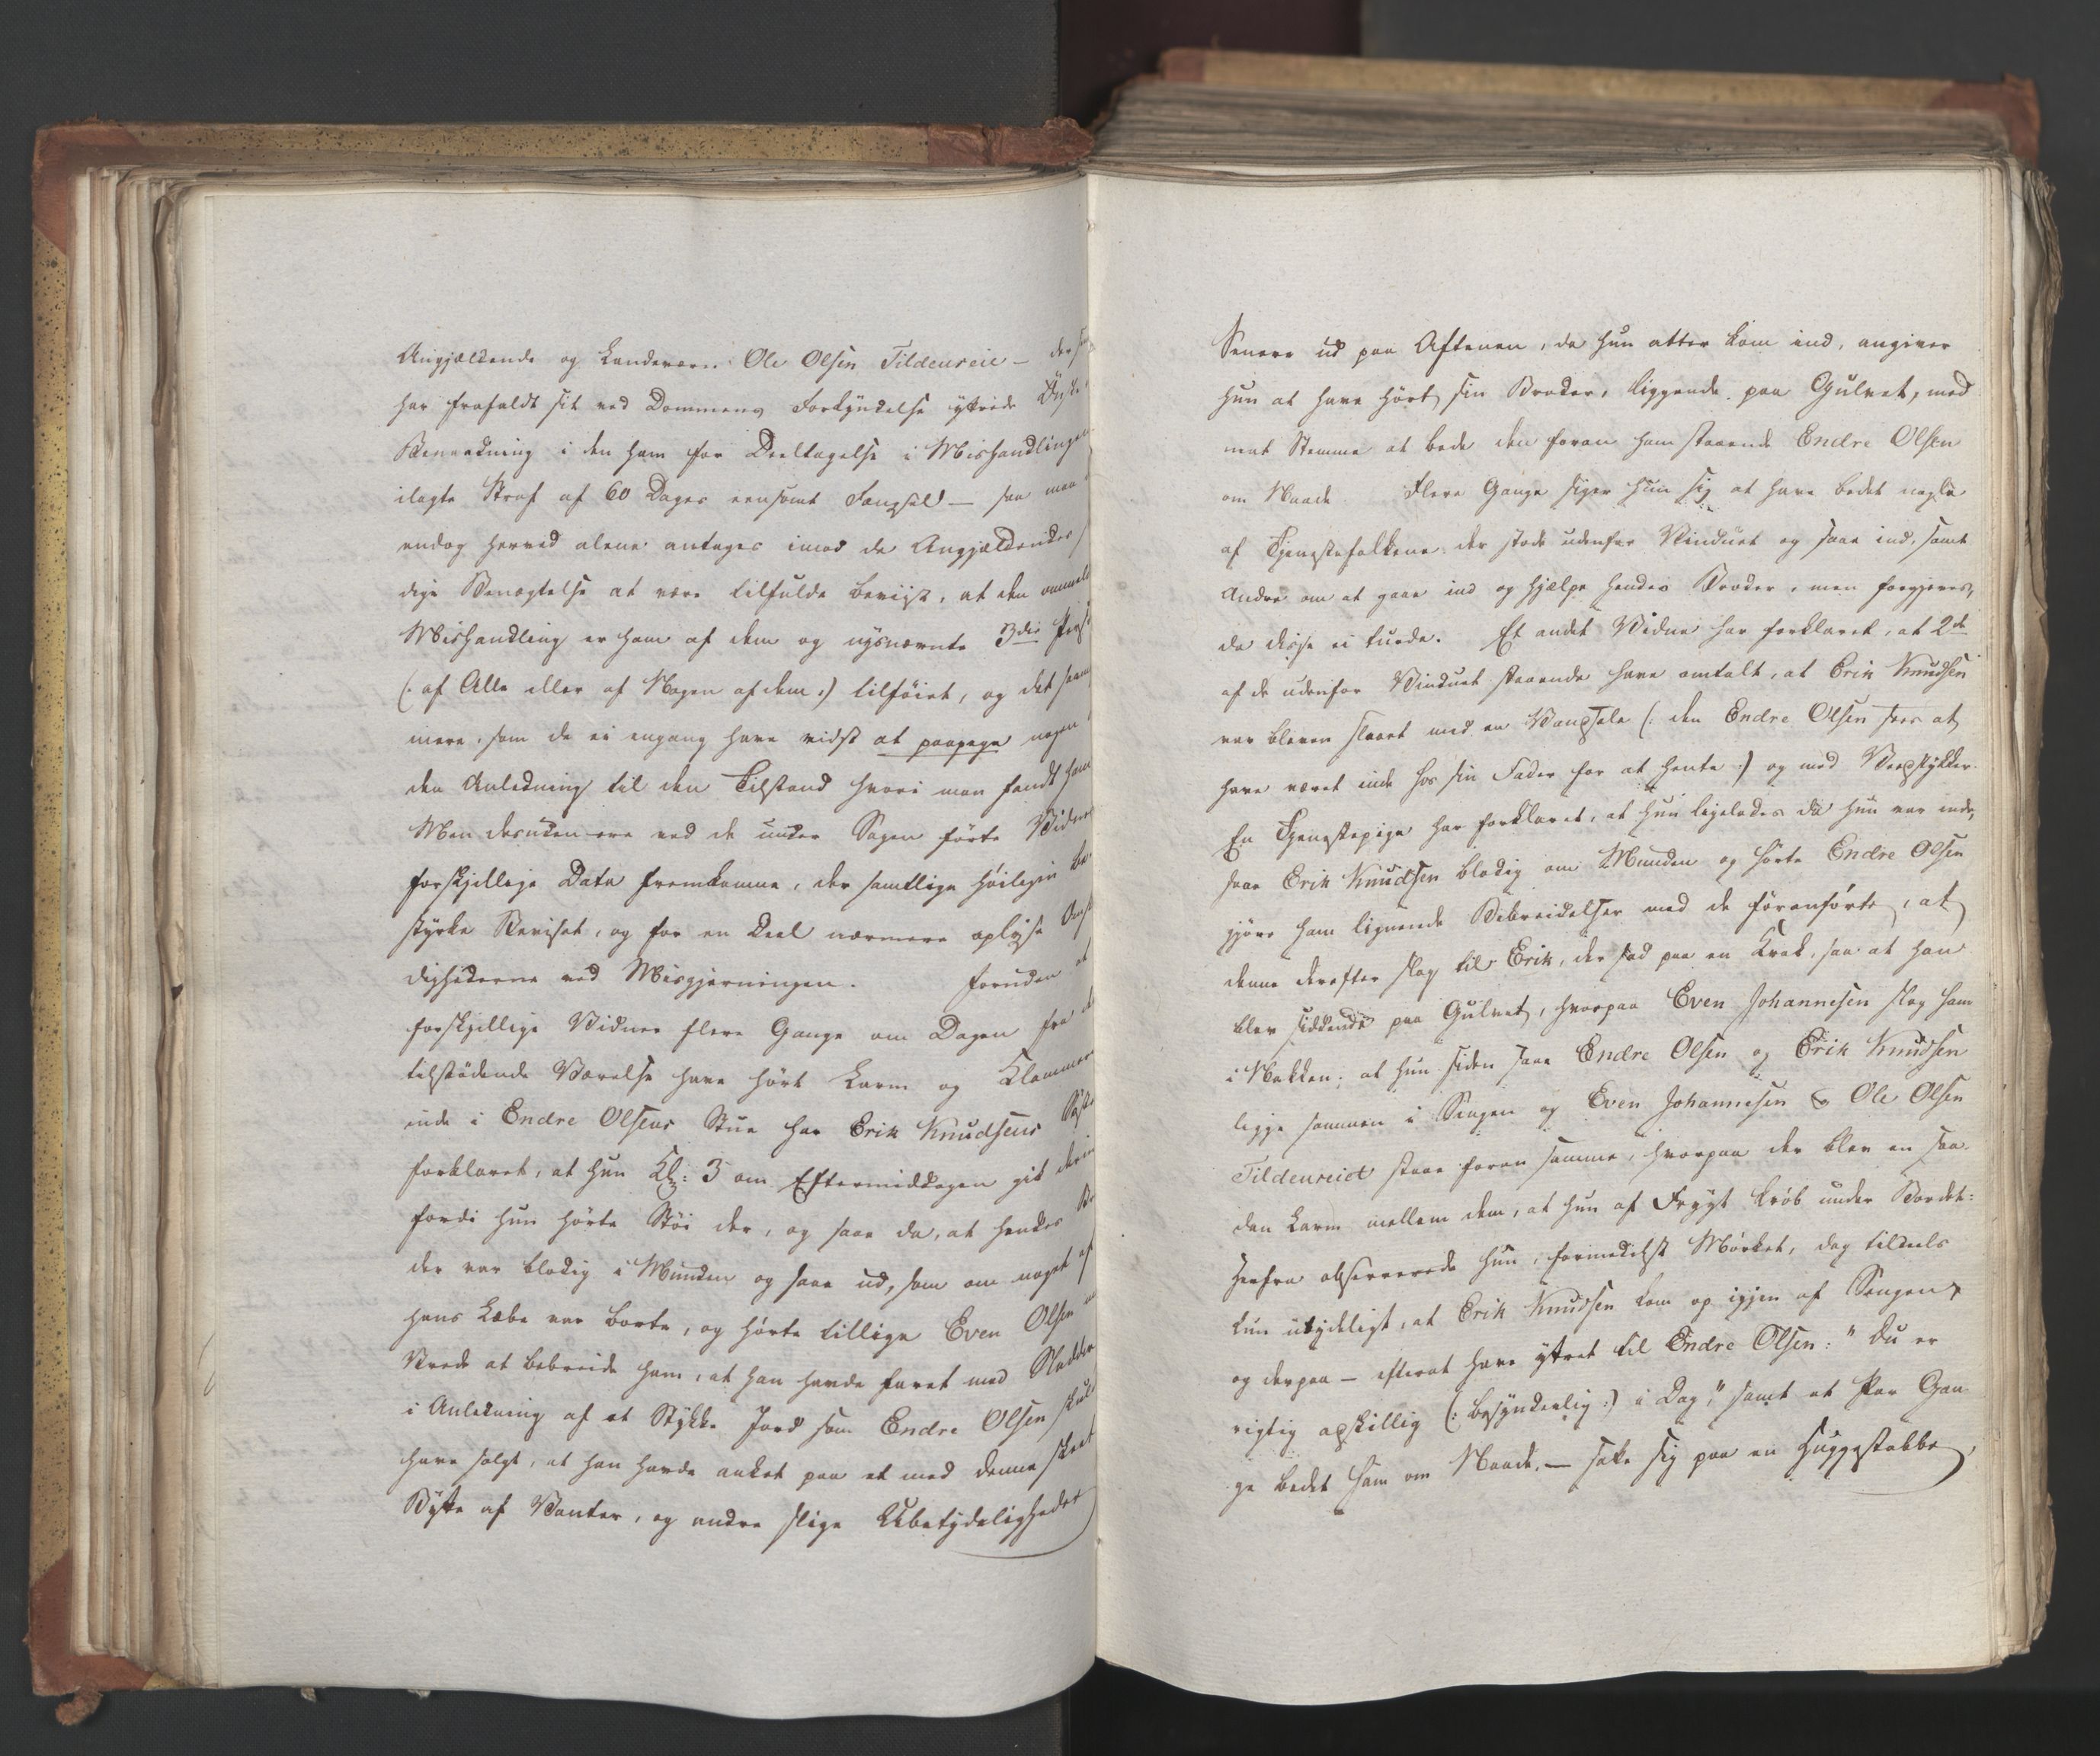 Angjældende og Landeværn Ole Olsen Tildenreie –
har frafaldt sit ved Dommens Forkyndelse yttrede
i den ham for Deeltagelse i Mishandlingen
ilagte Straf af 60 Dages eensomt Fængsel – saa maa
endog herved alene antages imod de Angjældendes
dige Benægtelse at være tilfulde beviist, at den
Mishandling er ham af dem og nysnævnte 3die
(: af Alle eller af Nogen af dem :) tilføiet, og det
mere, som de ei engang have vidst at paapege nogen
den Anledning til den Tilstand hvori man fandt ham
Men desuden ere ved de under Sagen førte Vidner
forskjellige Data fremkomne, der samtlige høiligen be
styrke Beviset, og for en Deel nærmere oplyse Omst
dighederne ved Misgjerningen. Foruden at
forskjellige Vidner flere Gange om Dagen fra et
tilstødende Værelse have hørt Larm og Klammer
inde i Endre Olsens Stue har Erik Knudsens Søster
forklaret, at hun Kl: 3 om Eftermiddagen gik derind
fordi hun hørte Støi der, og saae da, at hendes Bro
der var blodig i Munden og saae ud, som om noget af
hans Læbe var borte, og hørte tillige Even Olsen
Vrede at bebreide ham, at han havde faret med Sladder
i Anledning af et Stykke Jord som Endre Olsen skul
have solgt, at han havde anket paa et med denne skeet
Bytte af Vanter, og andre slige Ubetydeligheder
Senere ud paa Aftenen, da hun atter kom ind, angiver
hun at have hørt sin Broder, liggende paa Gulvet, med
mat Stemme at bede den foran ham staaende Endre Olsen
om Naade. Flere Gange siger hun sig at have bedet nogle
af Tjenestefolkene der stode udenfor Vinduet og saae ind, samt
Andre om at gaae ind og hjælpe hendes Broder, men forgjeves,
da disse ei turde. Et andet Vidne har forklaret, at 2de
af de udenfor Vinduet staaende have omtalt, at Erik Knudsen
var bleven slaaet med en (: den Endre Olsen sees at
have været inde hos sin Fader for at hente :) og med Veedstykker.
En Tjenestepige har forklaret, at hun ligeledes da hun var inde,
saae Erik Knudsen blodig om Munden og hørte Endre Olsen
gjøre ham lignende Bebreidelser med de foranførte, at
denne derefter slog til Erik, der sad paa en Krak, saa at han
blev siddende paa Gulvet, hvorpaa Even Johannesen slog ham
i Nakken; at hun siden saae Endre Olsen og Erik Knudsen
ligge sammen i Sengen og Even Johannesen & Ole Olsen
Tildenreiet staae foran samme, hvorpaa der blev en saa
dan Larm mellem dem, at hun af Frygt krøb under Bordet:
Herfra observerede hun, formedelst Mørket, dog tildeels
kun utydeligt, at Erik Knudsen kom op igjen af Sengen,
og derpaa – efterat have yttret til Endre Olsen: "Du er
rigtig apskillig (: besynderlig :) i Dag," samt et Par Gan
ge bedet ham om Naade, – satte sig paa en Huggestabbe,